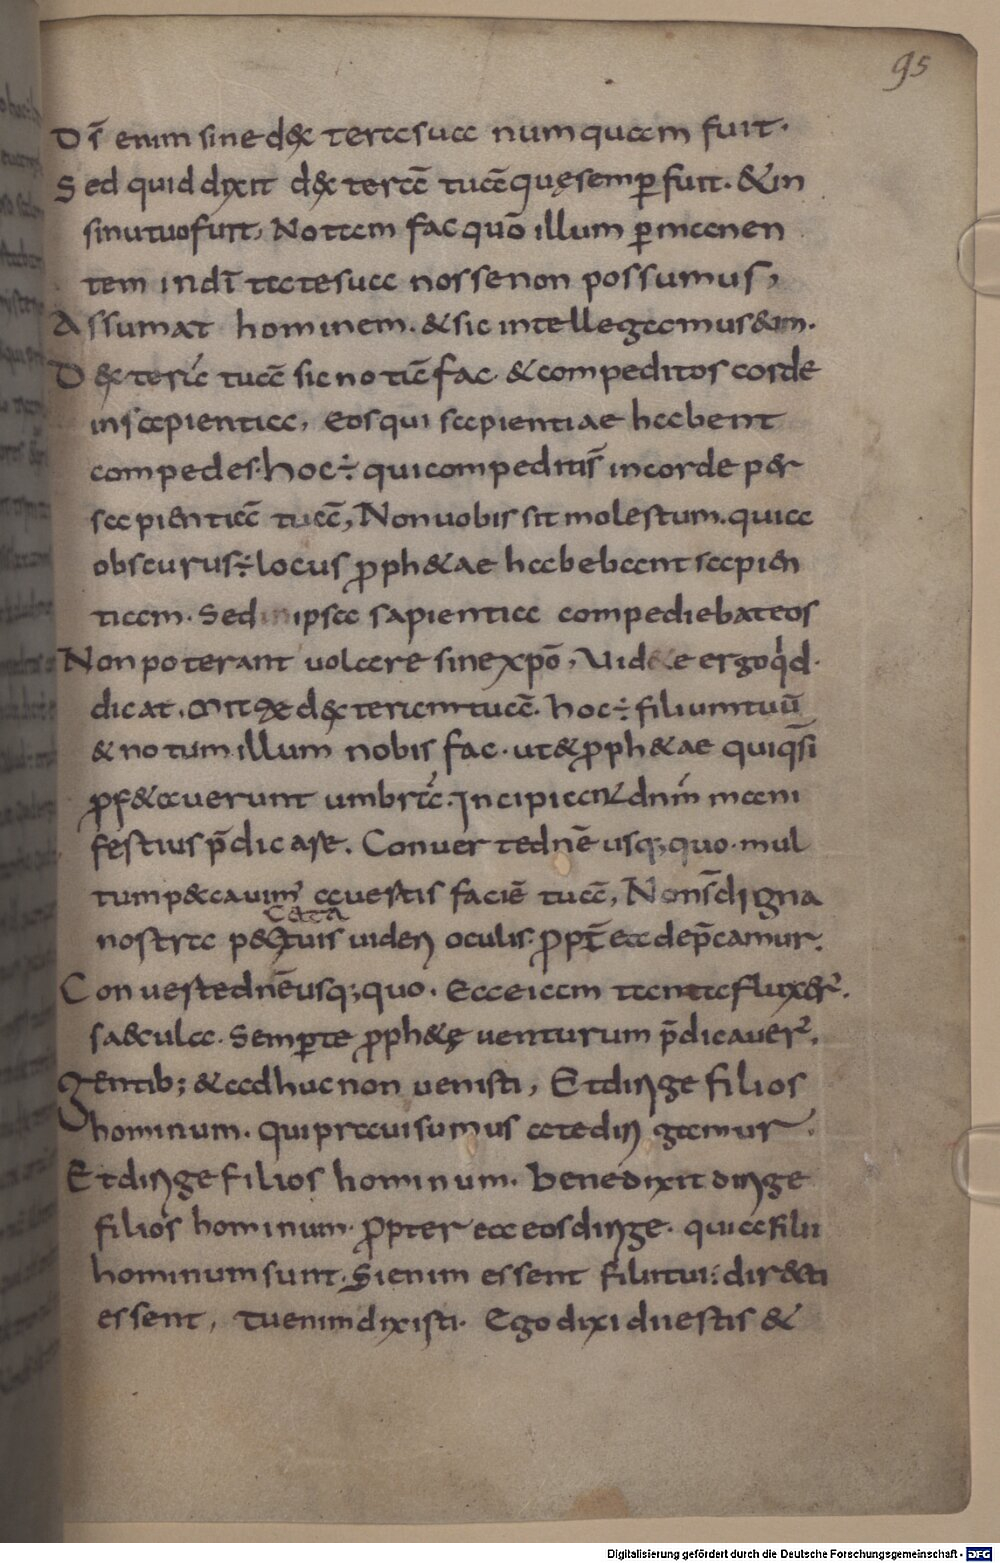 95
Ds̄ enim sine dextera sua numquam fuit.
Sed quid dixit dexterā tuā quę semper fuit. & in
sinu tuo fuit, Notam fac quō illum permanen
tem in dī̄tate sua nosse non possumus,
Assumat hominem. & sic intellegamus eum.
Dexterā tuā sic notā fac. & compeditos corde
in sapientia, eos qui sapientiae habent
compedes. hoc ÷ qui compediti s̄ in corde per
sapientiā tuā, Non uobis sit molestum. quia
obscurus ÷ locus proph&ae habebant sapien
tiam. Sed in ipsa sapientia compediebat eos
Non poterant uolare sine xpō, Uidete ergo qd
dicat. Mitte dexteram tuā. hoc ÷ filium tuū
& notum illum nobis fac. ut & proph&ae qui quasi
prof&auerunt umbra. Incipiant dnm mani
festius p̄dicare. Conuerte dnē usq; quo. mul
tum peccauim' auertis faciē tuā, Non s̄ digna
cata
nostra pec tuis uideri oculis. propt̄ ea dep̄camur.
Conuerte dnē usq; quo. Ecce iam tanta fluxer̄
saecula. Semper te proph&ę uenturum p̄dicauer̄.
gentib; & adhuc non uenisti, Et dirige filios
hominum. qui praui sumus a te dirigamur.
Et dirige filios hominum. benedixit dirige
filios hominum. propter ea eos dirige. quia filii
hominum sunt. Si enim essent filii tui: directi
essent, tu enim dixisti. Ego dixi dii estis &
Digitalisierung gefördert durch die Deutsche Forschungsgemeinschaft - DFG